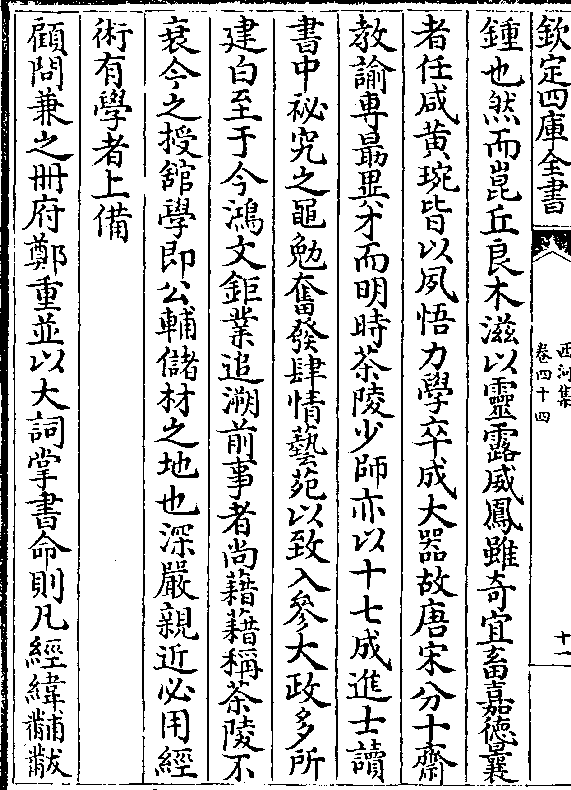 欽定四庫全書
西河集
卷四十四
十一
鍾也然而崑丘良木滋以靈露威鳳雖奇宜畜嘉德曩
者任咸黄琬皆以夙悟力學卒成大器故唐宋分十齋
教諭專最異才而明時茶陵少師亦以十七成進士讀
書中祕究之黽勉奮發肆情藝苑以致入參大政多所
建白至于今鴻文鉅業追溯前事者尚藉藉稱茶陵不
衰今之授舘學即公輔儲材之地也深嚴親近必用經
術有學者上備
顧問兼之冊府鄭重並以大詞掌書命則凡經緯黼黻